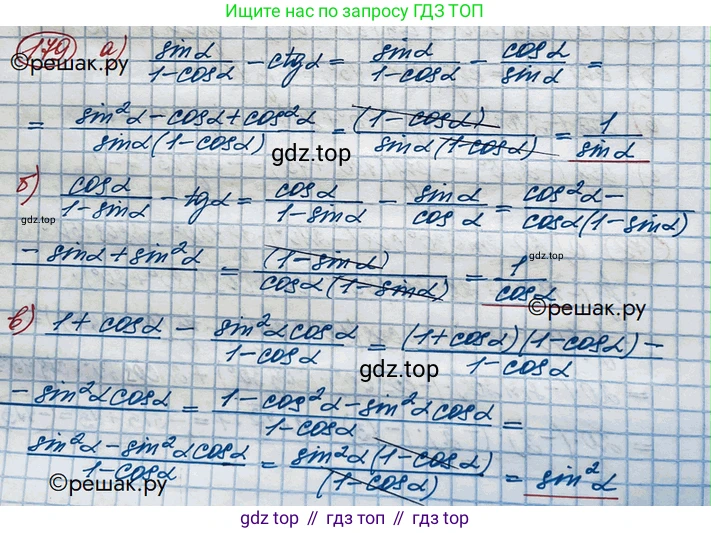 Ищите нас по запросу ГДЗ ТОП
179 а) sinα/(1-cosα) - ctgα = sinα/(1-cosα) - cosα/sinα =
©решак.ру
= (sin²α - cosα + cos²α)/(sinα(1-cosα)) = (1-cosα)/(sinα(1-cosα)) = 1/sinα
gdz.top
б) cosα/(1-sinα) - tgα = cosα/(1-sinα) - sinα/cosα = cos²α - /cosα(1-sinα)
gdz.top
- sinα + sin²α = (1-sinα)/(cosα(1-sinα)) = 1/cosα
gdz.top
©решак.ру
в) 1+cosα - sin²α cosα/(1-cosα) = (1+cosα)(1-cosα) - /1-cosα
gdz.top
- sin²α cosα = (1-cos²α - sin²α cosα)/(1-cosα) =
(sin²α - sin²α cosα)/(1-cosα) = sin²α(1-cosα)/(1-cosα) = sin²α
©решак.ру
gdz top // гдз топ // gdz top